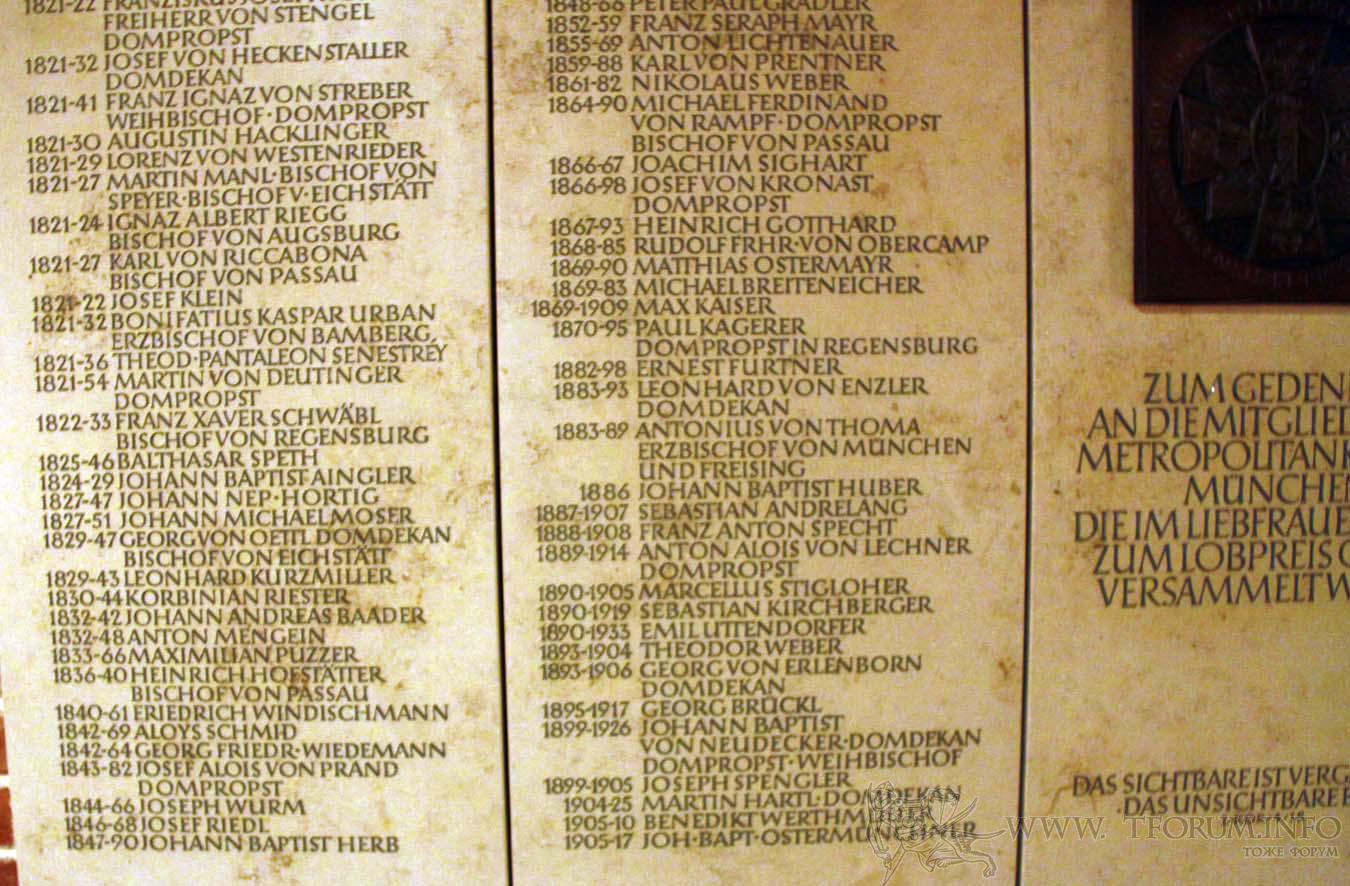 1821-22 FRANZISKUS JOSEF
FREIHERR VON STENGEL
DOMPROPST
1821-32 JOSEF VON HECKENSTALLER
DOMDEKAN
1821-41 FRANZ IGNAZ VON STREBER
WEIHBISCHOF·DOMPROPST
1821-30 AUGUSTIN HACKLINGER
1821-29 LORENZ VON WESTENRIEDER
1821-27 MARTIN MANL·BISCHOF VON
SPEYER·BISCHOF V·EICHSTÄTT
1821-24 IGNAZ ALBERT RIEGG
BISCHOF VON AUGSBURG
1821-27 KARL VON RICCABONA
BISCHOF VON PASSAU
1821-22 JOSEF KLEIN
1821-32 BONIFATIUS KASPAR URBAN
ERZBISCHOF VON BAMBERG
1821-36 THEOD·PANTALEON SENESTRÉY
1821-54 MARTIN VON DEUTINGER
DOMPROPST
1822-33 FRANZ XAVER SCHWÄBL
BISCHOF VON REGENSBURG
1825-46 BALTHASAR SPETH
1824-29 JOHANN BAPTIST AINGLER
1827-47 JOHANN NEP·HORTIG
1827-51 JOHANN MICHAEL MOSER
1829-47 GEORG VON OETTL DOMDEKAN
BISCHOF VON EICHSTÄTT
1829-43 LEONHARD KURZMILLER
1830-44 KORBINIAN RIESTER
1832-42 JOHANN ANDREAS BAADER
1832-48 ANTON MENGEIN
1833-66 MAXIMILIAN PUZZER
1836-40 HEINRICH HOFSTÄTTER
BISCHOF VON PASSAU
1840-61 FRIEDRICH WINDISCHMANN
1842-69 ALOYS SCHMID
1842-64 GEORG FRIEDR·WIEDEMANN
1843-82 JOSEF ALOIS VON PRAND
DOMPROPST
1844-66 JOSEPH WURM
1846-68 JOSEF RIEDL
1847-90 JOHANN BAPTIST HERB
1848-66 PETER PAUL GRADLER
1852-59 FRANZ SERAPH MAYR
1855-69 ANTON LICHTENAUER
1859-88 KARL VON PRENTNER
1861-82 NIKOLAUS WEBER
1864-90 MICHAEL FERDINAND
VON RAMPF·DOMPROPST
BISCHOF VON PASSAU
1866-67 JOACHIM SIGHART
1866-98 JOSEF VON KRONAST
DOMPROPST
1867-93 HEINRICH GOTTHARD
1868-85 RUDOLF FRHR·VON OBERCAMP
1869-90 MATTHIAS OSTERMAYR
1869-83 MICHAEL BREITENEICHER
1869-1909 MAX KAISER
1870-95 PAUL KAGERER
DOMPROPST IN REGENSBURG
1882-98 ERNEST FURTNER
1883-93 LEONHARD VON ENZLER
DOMDEKAN
1883-89 ANTONIUS VON THOMA
ERZBISCHOF VON MÜNCHEN
UND FREISING
1886 JOHANN BAPTIST HUBER
1887-1907 SEBASTIAN ANDRELANG
1888-1908 FRANZ ANTON SPECHT
1889-1914 ANTON ALOIS VON LECHNER
DOMPROPST
1890-1905 MARCELLUS STIGLOHER
1890-1919 SEBASTIAN KIRCHBERGER
1890-1933 EMIL UTTENDORFER
1893-1904 THEODOR WEBER
1893-1906 GEORG VON ERLENBORN
DOMDEKAN
1895-1917 GEORG BRÜCKL
1899-1926 JOHANN BAPTIST
VON NEUDECKER·DOMDEKAN
DOMPROPST·WEIHBISCHOF
1899-1905 JOSEPH SPENGLER
1904-25 MARTIN HARTL·DOMDEKAN
1905-10 BENEDIKT WERTHMÜLLER
1905-17 JOH·BAPT·OSTERMÜNCHNER
ZUM GEDEN
AN DIE MITGLIED
METROPOLITANK
MÜNCHEN
DIE IM LIEBFRAUE
ZUM LOBPREIS G
VERSAMMELT W
DAS SICHTBARE IST VERG
DAS UNSICHTBARE E
WWW.TFORUM.INFO
ТОЖЕ ФОРУМ